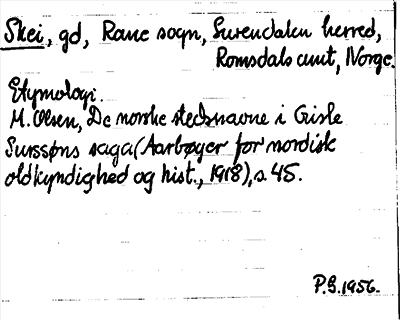 Skei, gd, Rane sogn, Surendalen herred,
Romsdals amt, Norge.
Etymologi.
M. Olsen, De norske stedsnavne i Gisle
Surssøns saga (Aarbøger for nordisk
oldkyndighed og hist., 1918), s. 45.
P.G. 1956.